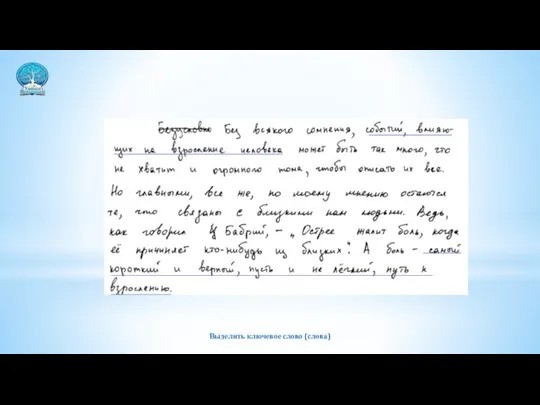 Безусловно Без всякого сомнения, событий, влияю-
щих на взросление человека может быть так много, что
не хватит и огромного тома, чтобы описать их все.
Но главными, все же, по моему мнению остаются
те, что связаны с близкими нам людьми. Ведь,
как говорил Бабрий, – „Острее жалит боль, когда
её причиняет кто-нибудь из близких". А боль – самый
короткий и верный, пусть и не лёгкий, путь к
взрослению.
Выделить ключевое слово (слова)